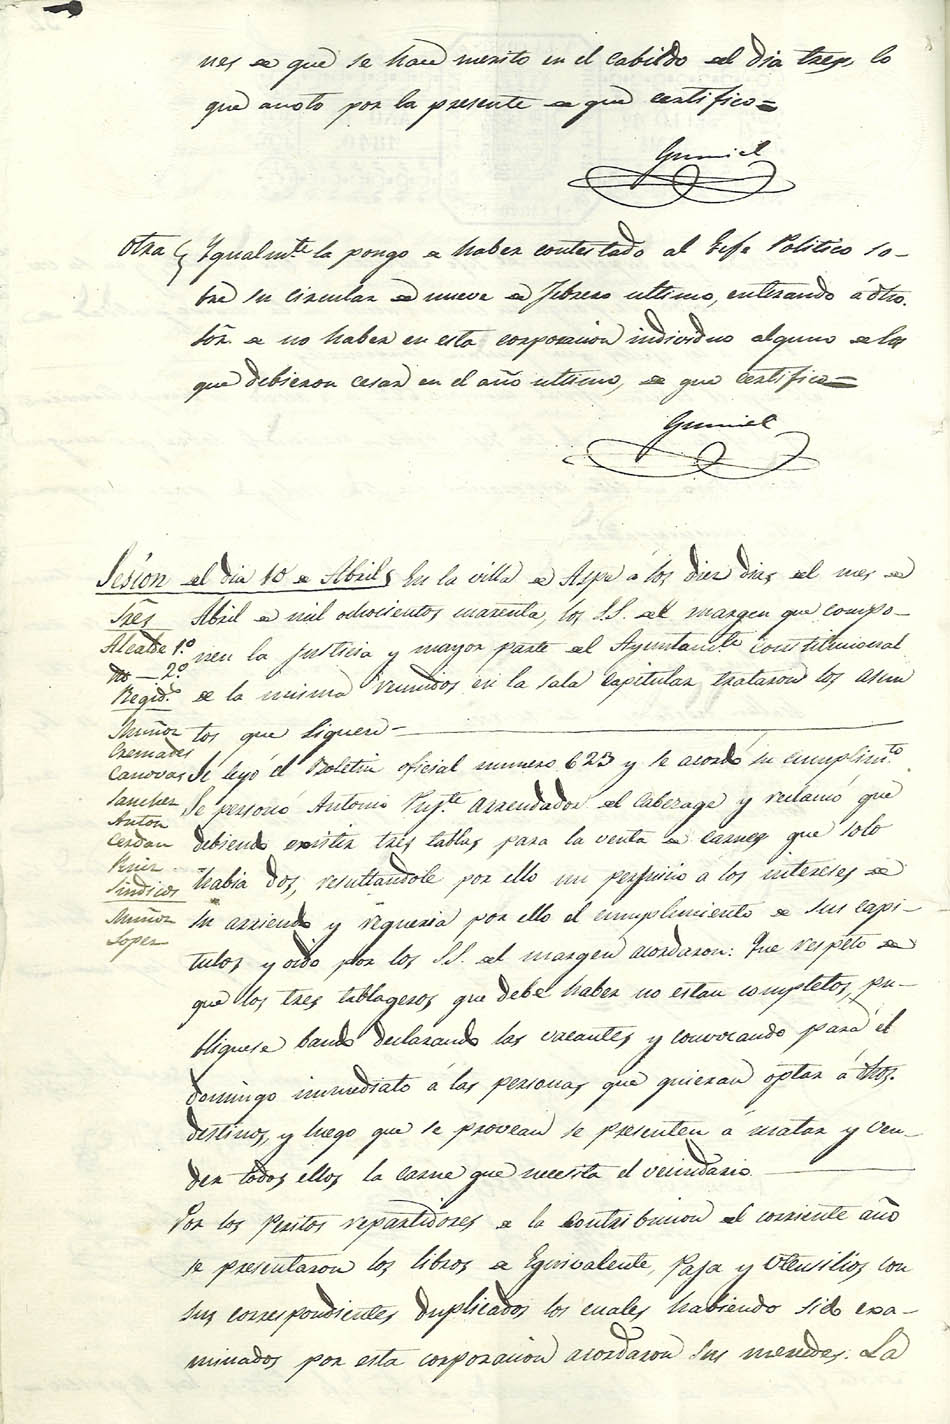 nes de que se hace merito en el cabildo del dia tres, lo
que anoto por la presente de que certifico=
Gumiel
Otra
Igualmte. la pongo de haber contestado al Gefe Politico so-
bre su circular de nueve de Febrero ultimo, enterando á dho.
Sōr. de no haber en esta corporacion individuo alguno de los
que debieron cesar en el año ultimo, de que certifico=
Gumiel
Sesion del dia 10 de Abril
En la villa de Aspe á los diez dias del mes de
Abril de mil ochocientos cuarenta, los S.S. del margen que compo-
nen la Justicia y mayor parte del Ayuntamto. constitucional
de la misma reunidos en la sala capitular trataron los asun
tos que siguen-
Sres
Alcalde 1.º
Dho - 2.º
Regid.s
Muñoz
Cremades
Canovas
Sanchez
Anton
Cerdan
Ruiz
Sindicos
Muñoz
Lopez
Se leyó el Boletin oficial numero 623 y se acordó su cumplimto.
Se personó Antonio arrendador del cabezage y reclamó que
debiendo existir tres tablas para la venta de carnes que solo
habia dos, resultandole por ello un perjuicio a los intereses de
su arriendo y requeria por ello el cumplimiento de sus capi-
tulos y oido por los S.S. del margen acordaron: Que respeto de
que los tres tablageros que debe haber no estan completos, pu-
bliquese bando declarando las vacantes y convocando para el
domingo immediato á las personas que quieran optar á dhos.
destinos, y luego que se provean se presenten á matar y ven-
der todos ellos la carne que necesita el vecindario.
Por los Peritos repartidores de la contribucion del corriente año
se presentaron los libros de Equivalente, Paja y Utensilios con
sus correspondientes duplicados los cuales habiendo sido exa-
minados por esta corporacion acordaron sus mercedes. La